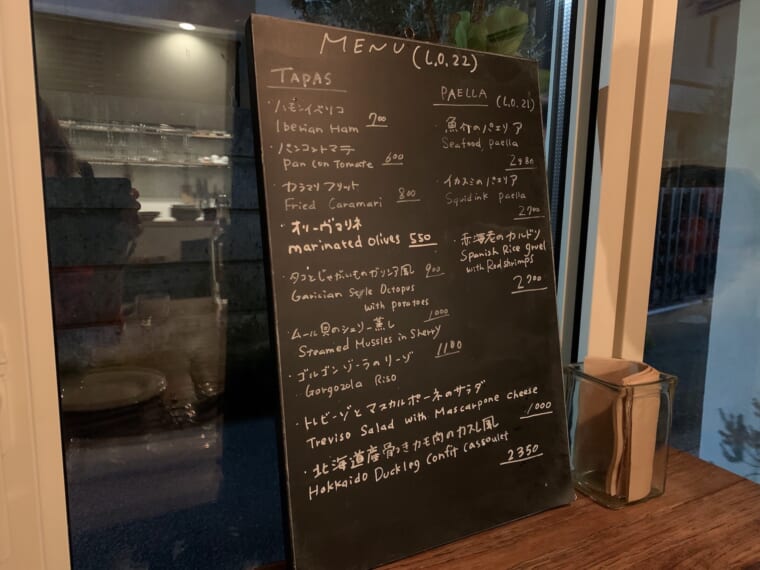 MENU (L.O.22)
TAPAS
・ハモンイベリコ
Iberian Ham 700
・パンコントマテ
Pan con Tomate 600
・カラマリフリット
Fried Caramari 800
・オリーヴマリネ
marinated olives 550
・タコとじゃがいものガリシア風 900
Garician Style Octopus
with potatoes
・ムール貝のシェリー蒸し 1000
Steamed Mussles in Sherry
・ゴルゴンゾーラのリーゾ 1100
Gorgozola Riso
・トレビーゾとマスカルポーネのサラダ
Treviso Salad with Mascarpone cheese 1000
・北海道産骨つきカモ肉のカスレ風
Hokkaido Duckleg Confit Cassoulet 2350
PAELLA (L.O.21)
・魚介のパエリア
Seafood paella
2980
・イカスミのパエリア
Squidink paella
2700
・赤海老のカルドソ
Spanish Rice gruel
with Redshrimps
2700